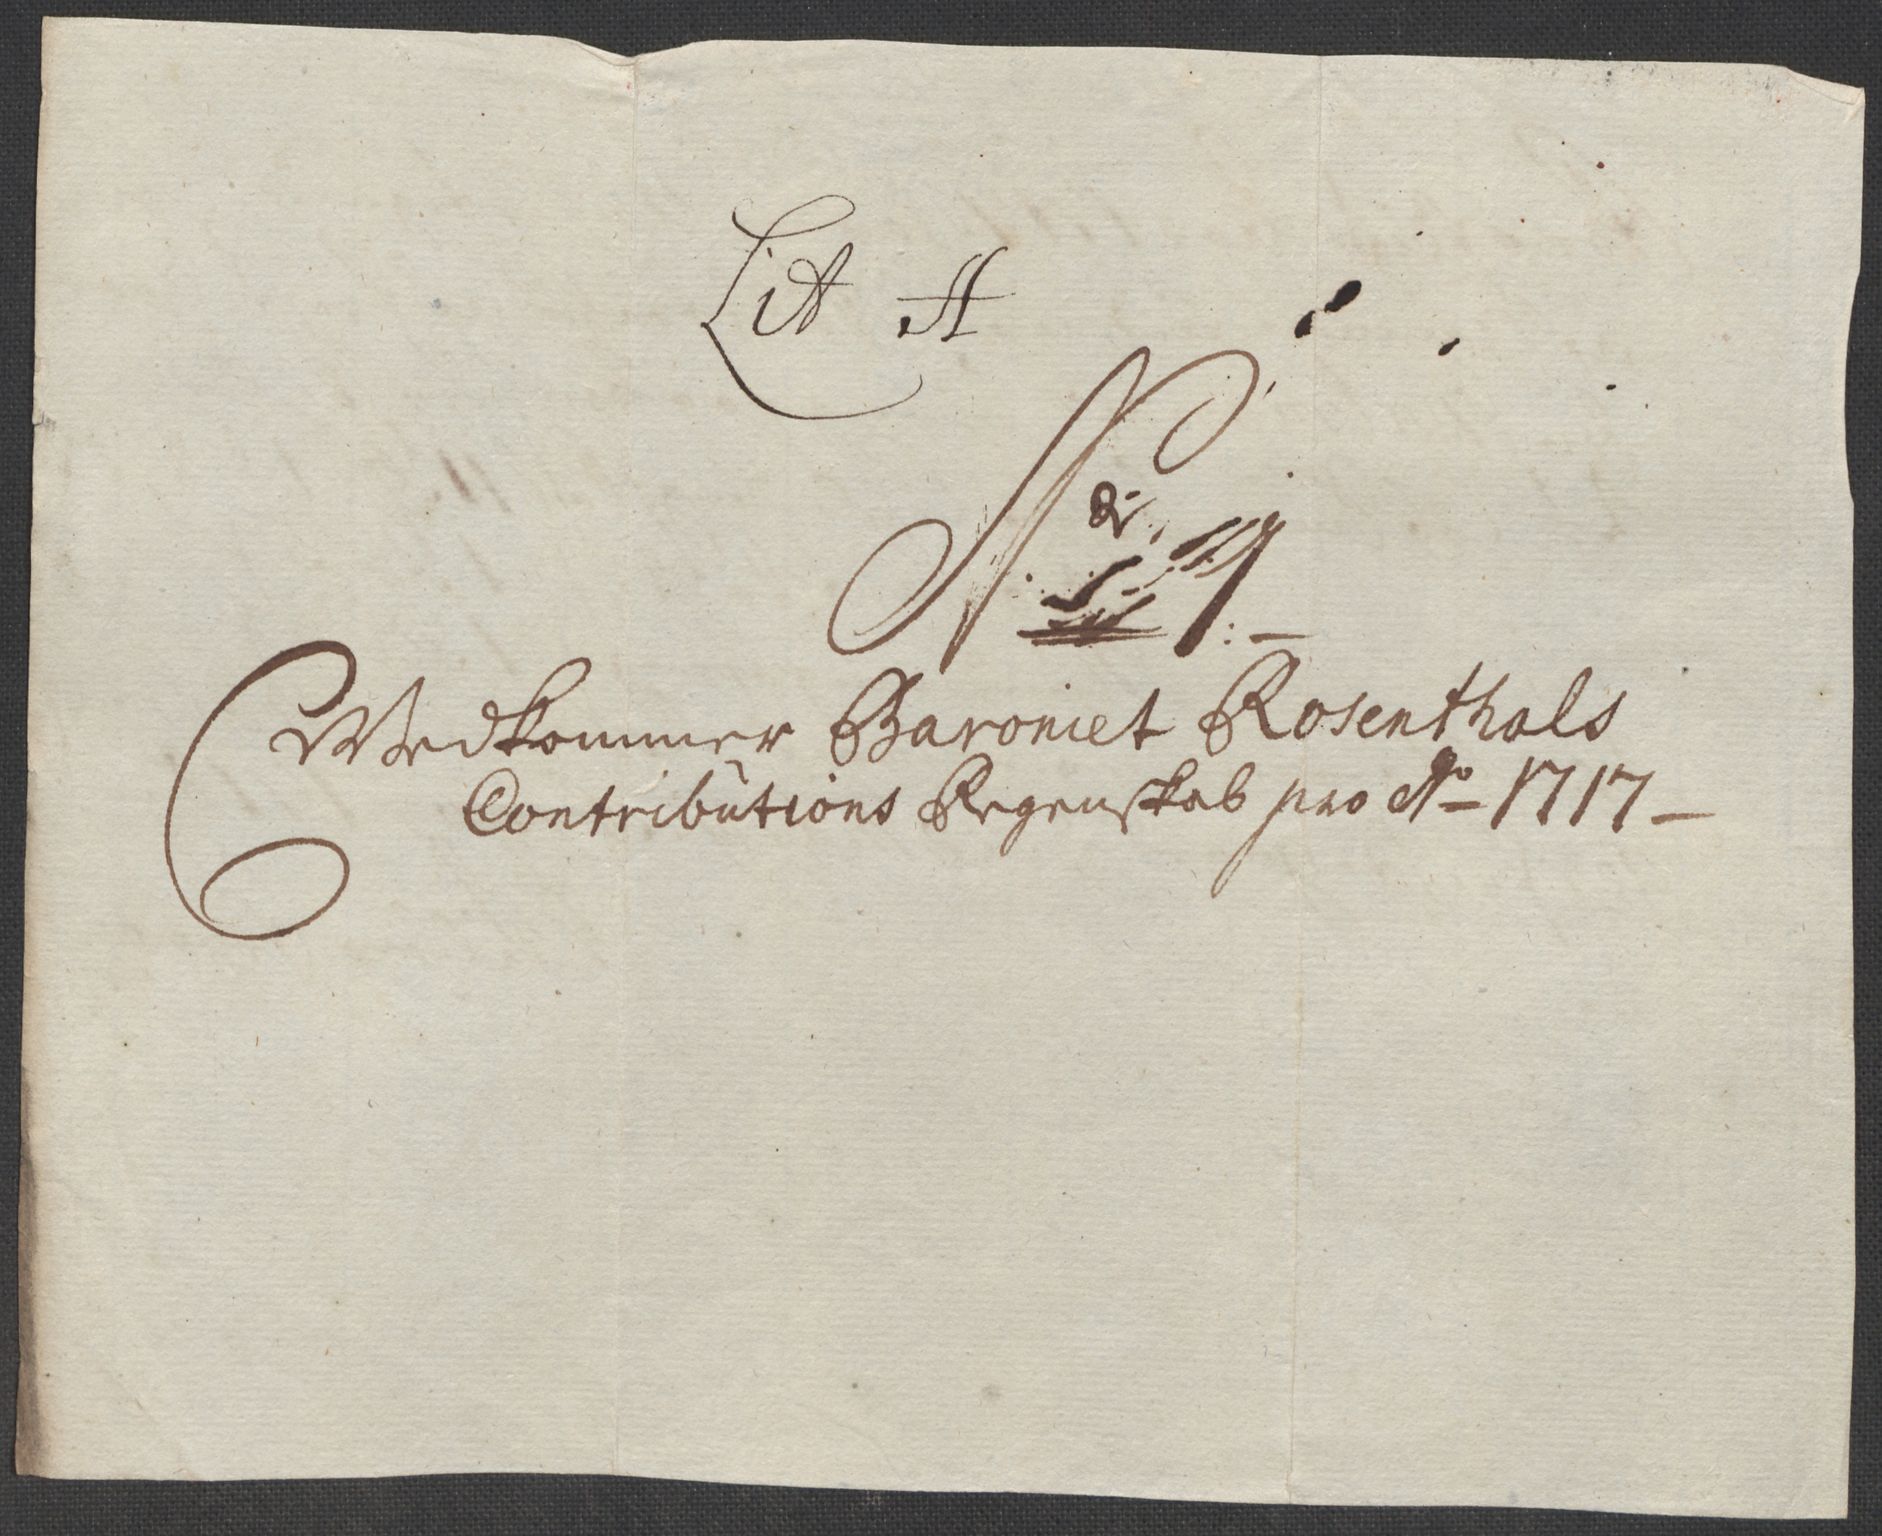 Lit A
No 1:
Vedkommer Baroniet Rosenthals
Contributions Regenskab pro Ao 1717